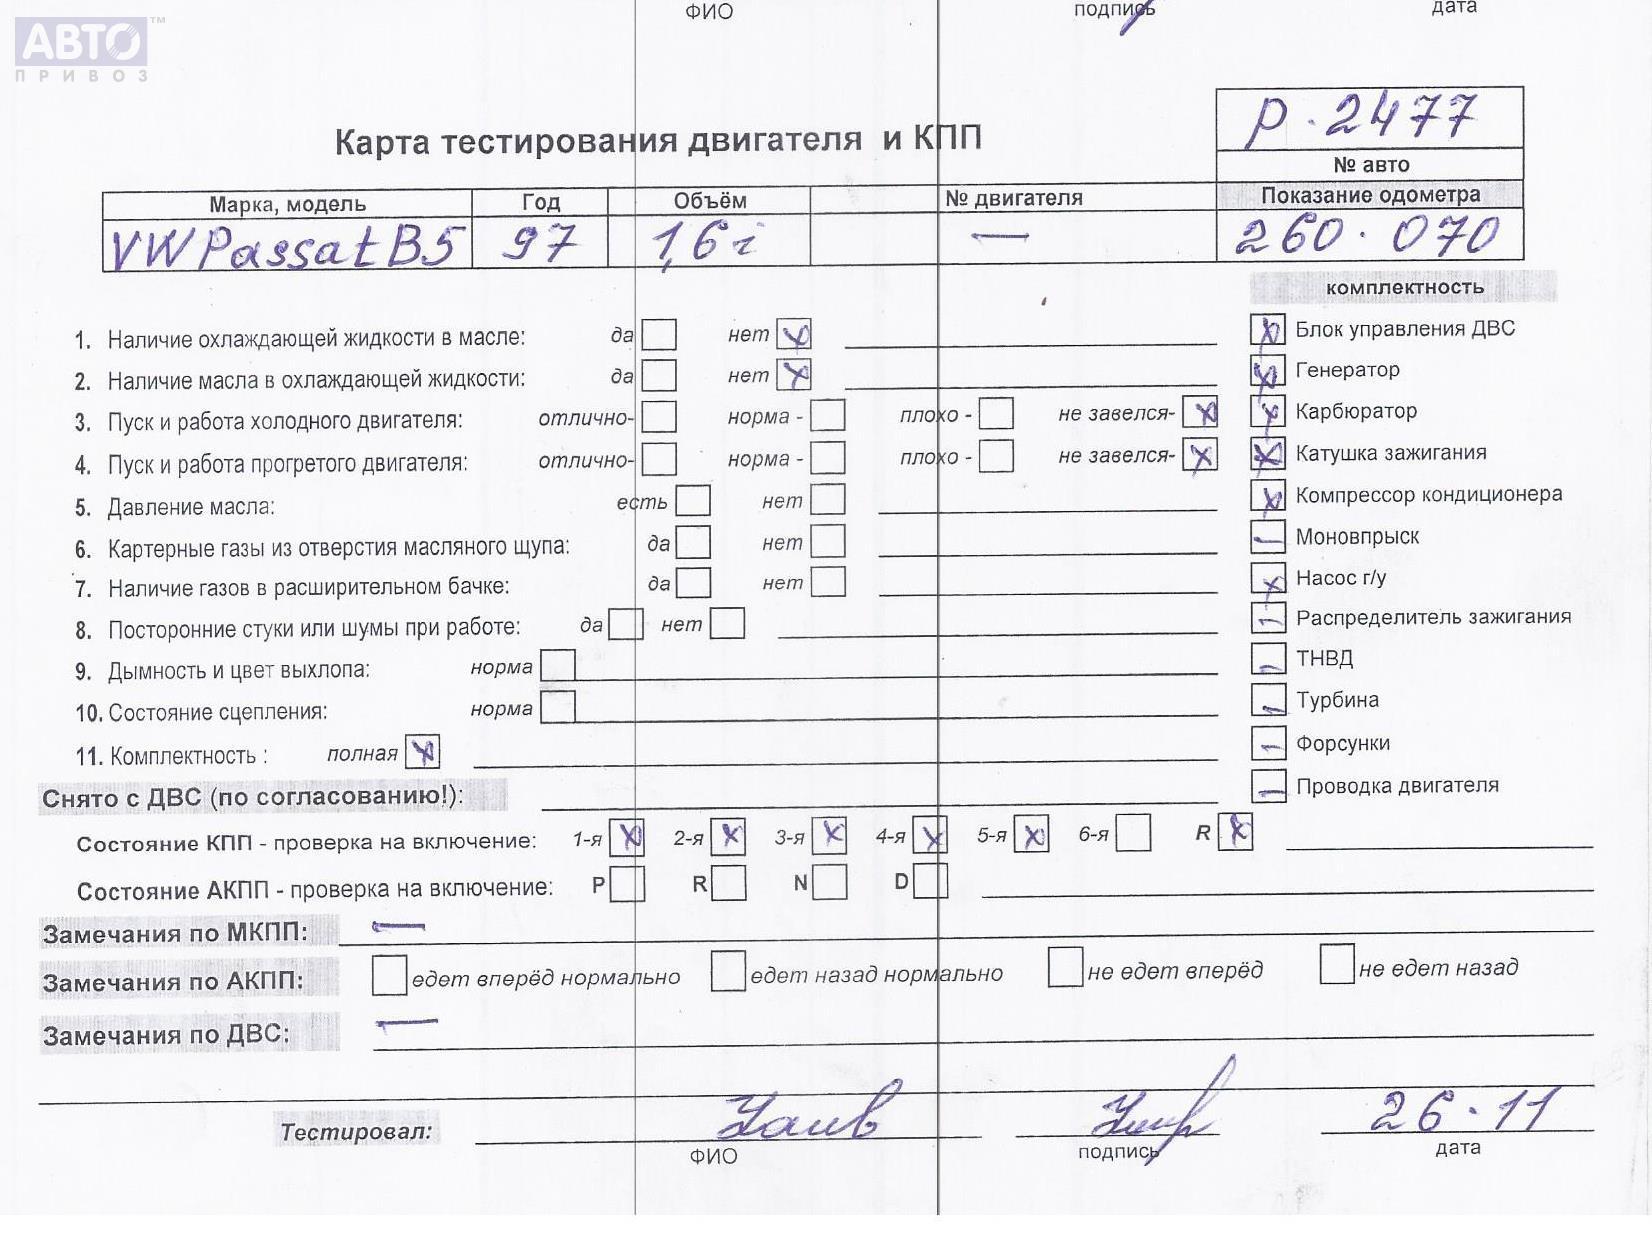 ФИО подпись дата
АВТО™
ПРИВОЗ
P·2477
Карта тестирования двигателя и КПП
№ авто
Марка, модель Год Объём № двигателя Показание одометра
VW Passat B5 97 1,6i — 260·070
комплектность
1. Наличие охлаждающей жидкости в масле: да нет
Блок управления ДВС
2. Наличие масла в охлаждающей жидкости: да нет
Генератор
3. Пуск и работа холодного двигателя: отлично- норма - плохо - не завелся-
Карбюратор
4. Пуск и работа прогретого двигателя: отлично- норма - плохо - не завелся-
Катушка зажигания
5. Давление масла: есть нет
Компрессор кондиционера
6. Картерные газы из отверстия масляного щупа: да нет
Моновпрыск
7. Наличие газов в расширительном бачке: да нет
Насос г/у
8. Посторонние стуки или шумы при работе: да нет
Распределитель зажигания
9. Дымность и цвет выхлопа: норма
ТНВД
10. Состояние сцепления: норма
Турбина
11. Комплектность : полная
Форсунки
Снято с ДВС (по согласованию!):
Проводка двигателя
Состояние КПП - проверка на включение: 1-я 2-я 3-я 4-я 5-я 6-я R
Состояние АКПП - проверка на включение: P R N D
Замечания по МКПП: —
Замечания по АКПП: едет вперёд нормально едет назад нормально не едет вперёд не едет назад
Замечания по ДВС: —
Тестировал: 26·11
ФИО подпись дата